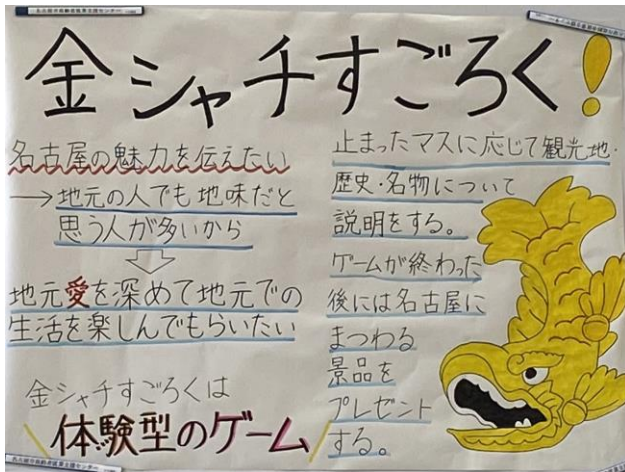 金シャチすごろく!
名古屋の魅力を伝えたい
→地元の人でも地味だと
思う人が多いから
地元愛を深めて地元での
生活を楽しんでもらいたい
金シャチすごろくは
\体験型のゲーム/
止まったマスに応じて観光地・
歴史・名物について
説明をする。
ゲームが終わった
後には名古屋に
まつわる
景品を
プレゼント
する。